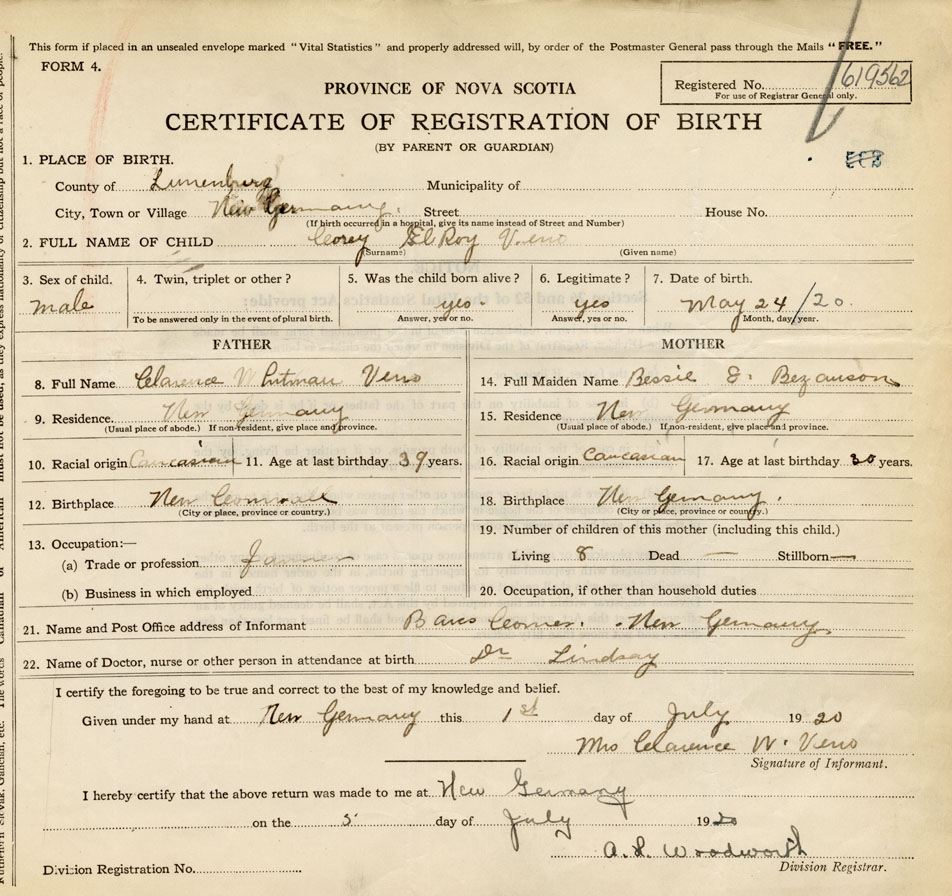 This form if placed in an unsealed envelope marked "Vital Statistics" and properly addressed will, by order of the Postmaster General pass through the Mails "FREE."
FORM 4.
Registered No. 619562
For use of Registrar General only.
PROVINCE OF NOVA SCOTIA
CERTIFICATE OF REGISTRATION OF BIRTH
(BY PARENT OR GUARDIAN)
1. PLACE OF BIRTH.
County of Lunenburg Municipality of
City, Town or Village New Germany. Street House No.
(If birth occurred in a hospital, give its name instead of Street and Number)
2. FULL NAME OF CHILD Corey ElRoy Veno
(Surname) (Given name)
3. Sex of child. 4. Twin, triplet or other? 5. Was the child born alive? 6. Legitimate? 7. Date of birth.
male yes. yes May 24/20.
To be answered only in the event of plural birth. Answer, yes or no. Answer, yes or no. Month, day, year.
FATHER MOTHER
8. Full Name Clarence Whitman Veno 14. Full Maiden Name Bessie E. Bezanson
9. Residence. New Germany 15. Residence New Germany
(Usual place of abode.) If non-resident, give place and province. (Usual place of abode.) If non-resident, give place and province.
10. Racial origin Caucasian 11. Age at last birthday 39 years. 16. Racial origin Caucasian 17. Age at last birthday 30 years.
12. Birthplace New Cornwall 18. Birthplace New Germany.
(City or place, province or country.) (City or place, province or country.)
19. Number of children of this mother (including this child.)
13. Occupation:—
Living 8 Dead — Stillborn —
(a) Trade or profession Farmer
(b) Business in which employed 20. Occupation, if other than household duties
21. Name and Post Office address of Informant Barss Corner. New Germany
22. Name of Doctor, nurse or other person in attendance at birth Dr Lindsay
I certify the foregoing to be true and correct to the best of my knowledge and belief.
Given under my hand at New Germany this 1st day of July 1920
Mrs Clarence W. Veno
Signature of Informant.
I hereby certify that the above return was made to me at New Germany
on the 5 day of July 1920
A. L. Woodworth
Division Registration No. Division Registrar.